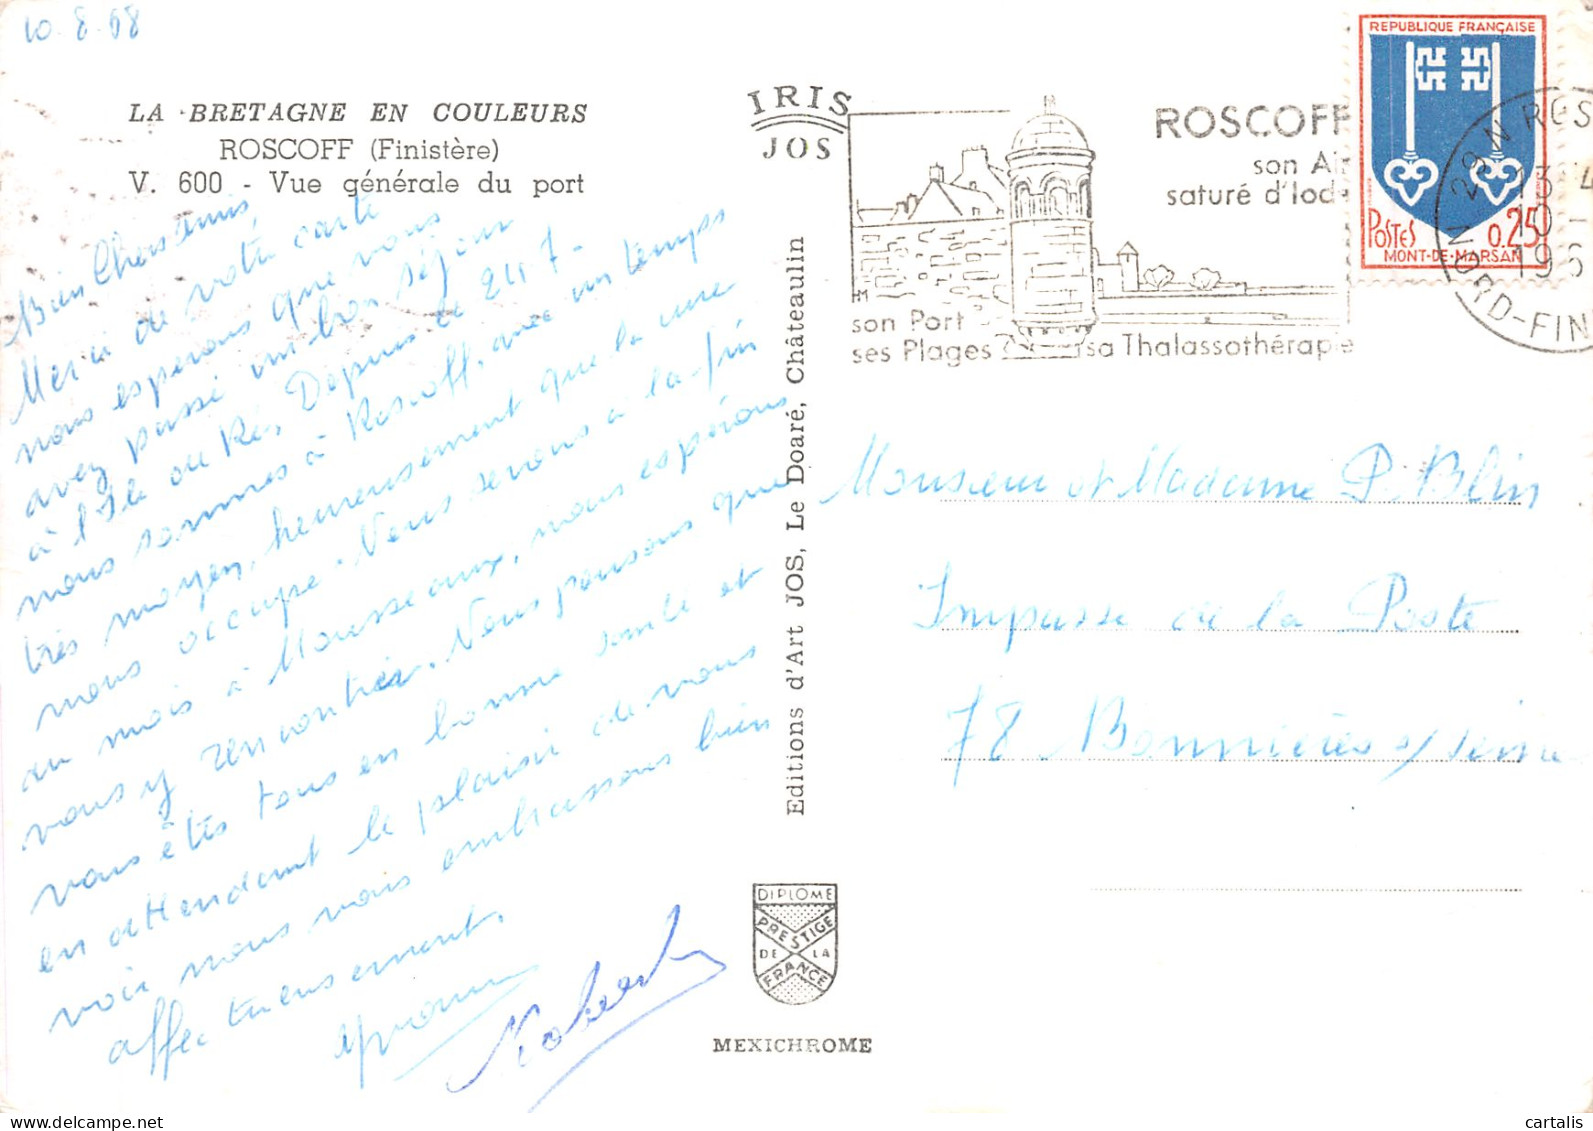 10.8.68
LA BRETAGNE EN COULEURS
ROSCOFF (Finistère)
V. 600 - Vue générale du port
Bien Chers Amis,
Merci de votre carte
nous espérons que vous
avez passé un bon séjour
à l'Ile de Ré. Depuis le 24.7 -
nous sommes à Roscoff, avec un temps
très moyen, heureusement que la mer
nous occupe. Nous serons à la fin
du mois à Mousseaux, nous espérons
vous y rencontrer. Nous pensons que
vous êtes tous en bonne santé et
en attendant le plaisir de vous
voir nous vous embrassons bien
affectueusement.
Yvonne
Robert
IRIS
JOS
Editions d'Art JOS, Le Doaré, Châteaulin
DIPLOME
PRESTIGE
DE LA
FRANCE
MEXICHROME
ROSCOFF
son Air
saturé d'Iode
son Port
ses Plages
sa Thalassothérapie
REPUBLIQUE FRANÇAISE
POSTES
0.25
MONT-DE-MARSAN
29 N ROS
13-4
10 -
196
NORD-FIN
Monsieur et Madame P. Blin
Impasse de la Poste
78 Bonnières s/Seine
cartalis
www.delcampe.net